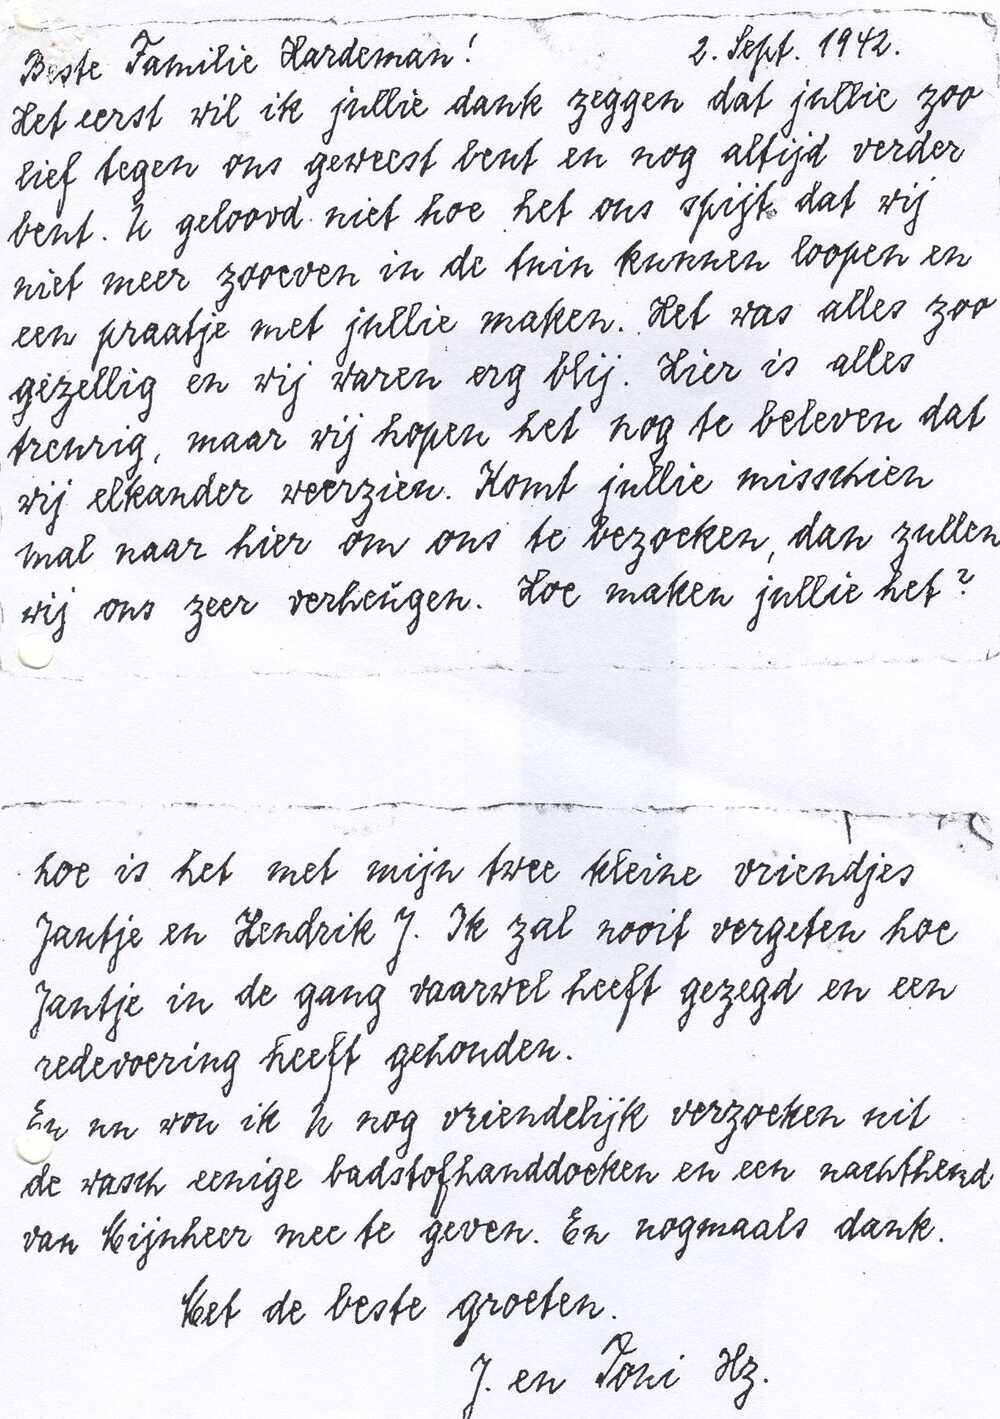 Beste Familie Hardeman! 2. Sept. 1942.
Het eerst wil ik jullie dank zeggen dat jullie zoo
lief tegen ons geweest bent en nog altijd verder
bent. U geloovd niet hoe het ons spijt dat wij
niet meer zooeven in de tuin kunnen loopen en
een praatje met jullie maken. Het was alles zoo
gezellig en wij waren erg blij. Hier is alles
treurig, maar wij hopen het nog te beleven dat
wij elkander weerzien. Komt jullie misschien
mal naar hier om ons te bezoeken, dan zullen
wij ons zeer verheügen. Hoe maken jullie het?
hoe is het met mijn twee kleine vriendjes
Jantje en Hendrik J. Ik zal nooit vergeten hoe
Jantje in de gang vaarwel heeft gezegd en een
redevoering heeft gehouden.
En nu wou ik U nog vriendelijk verzoeken uit
de wasch eenige badstofhanddoeken en een nachthemd
van Mijnheer mee te geven. En nogmaals dank.
Met de beste groeten.
J. en Toni Hz.